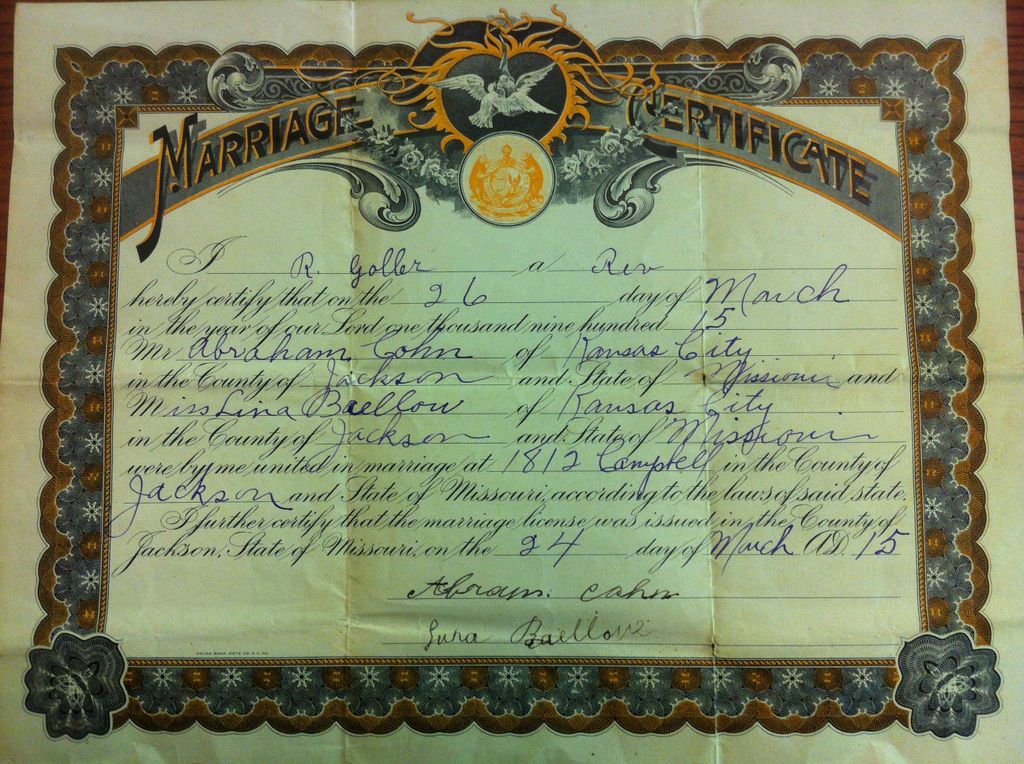 MARRIAGE CERTIFICATE
I R. Goller a Rev
hereby certify that on the 26 day of March
in the year of our Lord one thousand nine hundred 15
Mr Abraham Cohn of Kansas City
in the County of Jackson and State of Missouri and
Miss Lina Baellow of Kansas City
in the County of Jackson and State of Missouri
were by me united in marriage at 1812 Campbell in the County of
Jackson and State of Missouri, according to the laws of said state.
I further certify that the marriage license was issued in the County of
Jackson, State of Missouri, on the 24 day of March A.D. 15
Abram. Cohn